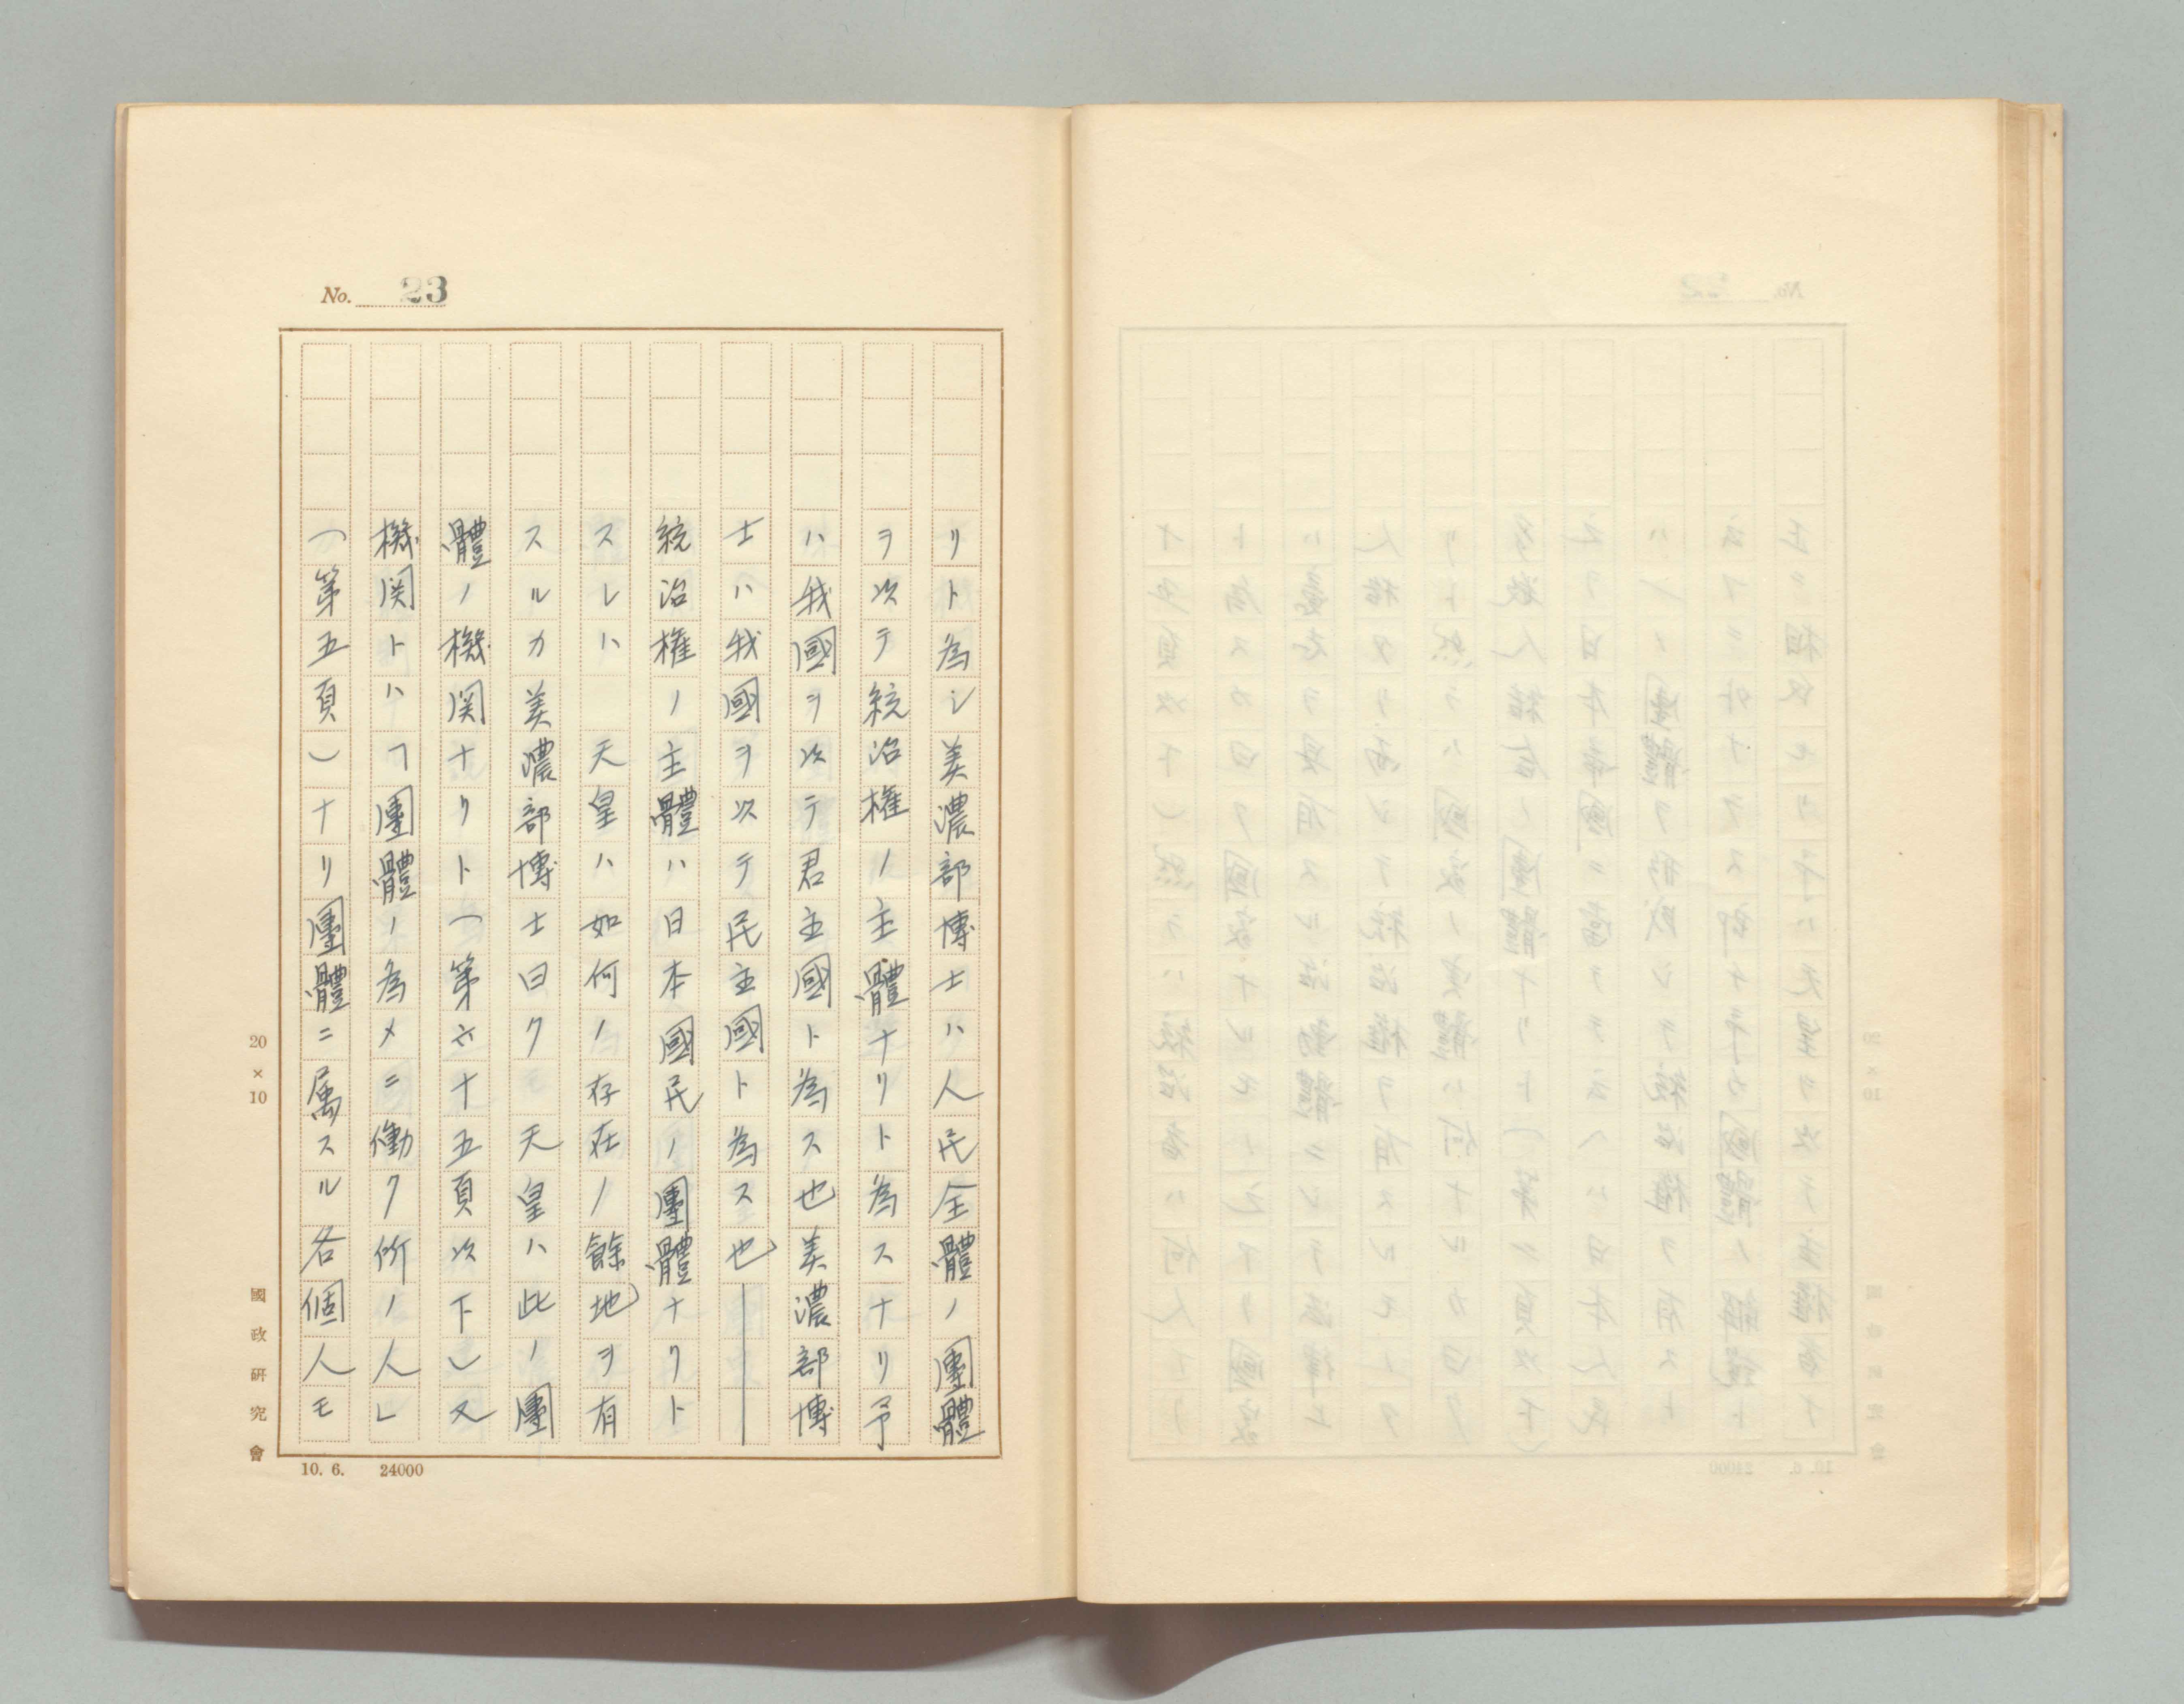 No. 23
リト為シ美濃部博士ハ人民全體ノ團體
ヲ以テ統治権ノ主體ナリト為スナリ予
ハ我國ヲ以テ君主國ト為ス也美濃部博
士ハ我國ヲ以テ民主國ト為ス也――
統治権ノ主體ハ日本國民ノ團體ナリト
スレハ　天皇ハ如何ノ存在ノ餘地ヲ有
スルカ美濃部博士曰ク　天皇ハ此ノ團
體ノ機関ナリト（第六十五頁以下）又
機関トハ「團體ノ為メニ働ク所ノ人」
（第五頁）ナリ團體ニ属スル各個人モ
20×10
國政研究會
10. 6. 24000